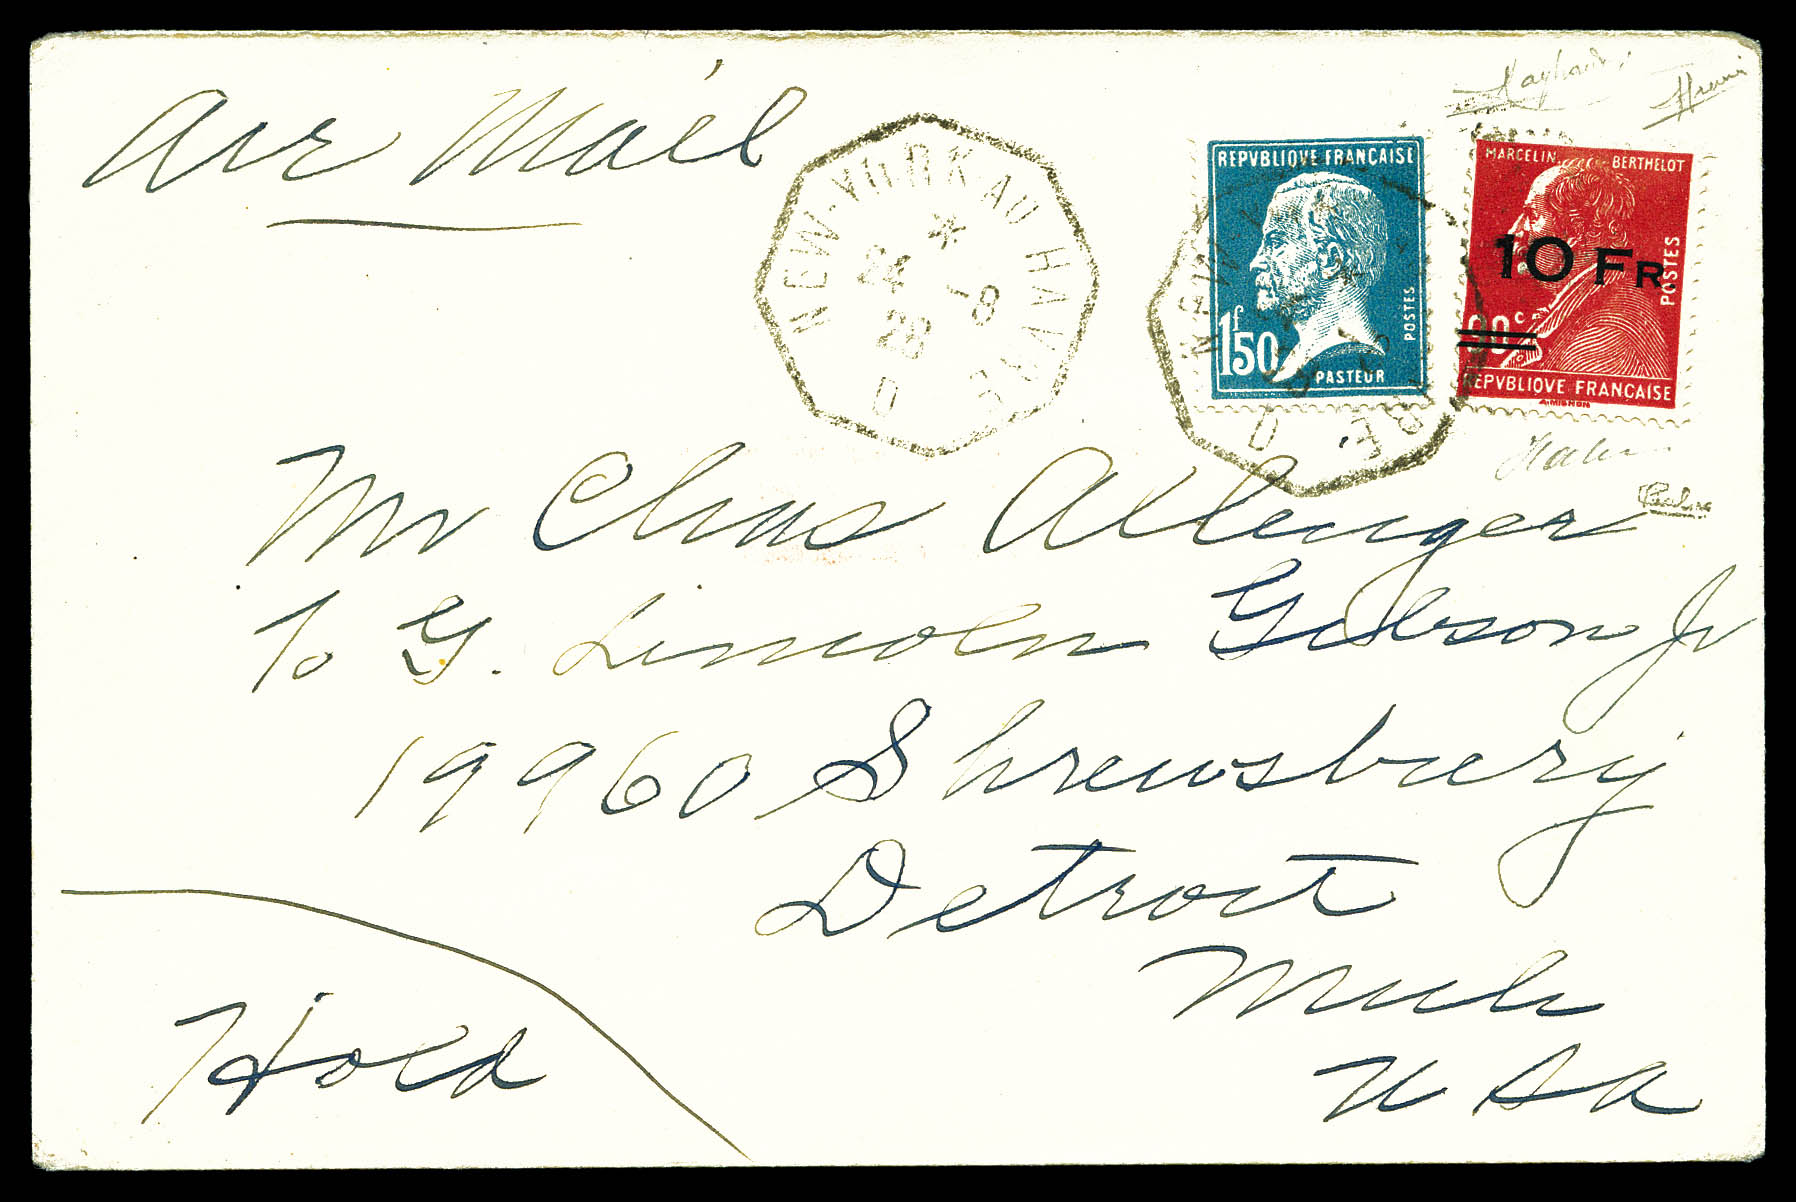 Air Mail
NEW-YORK AU HAVRE
*
24 -8
28
D
REPVBLIQVE FRANÇAISE
1f50
POSTES
PASTEUR
MARCELIN BERTHELOT
10 FR
90c
POSTES
REPVBLIQVE FRANÇAISE
A.MIGNON
Mr Chas Allenger
To G. Lincoln Gibson Jr
19960 Shrewsbury
Detroit
Mich
USA
Hold